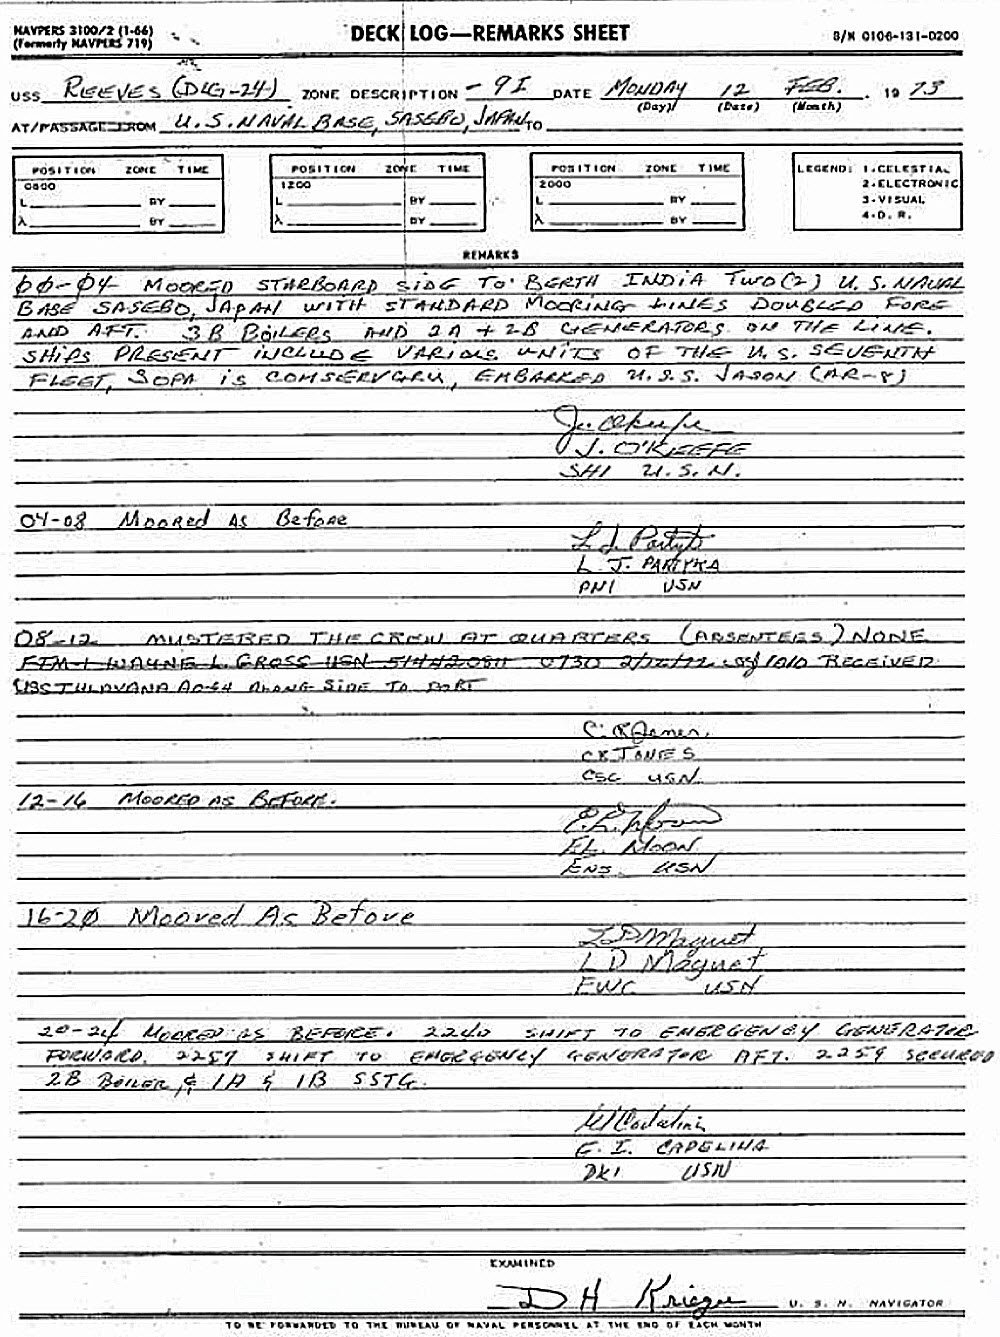 NAVPERS 3100/2 (1-66)
(Formerly NAVPERS 719)
DECK LOG—REMARKS SHEET
S/N 0106-131-0200
USS REEVES (DLG-24) ZONE DESCRIPTION -9I DATE MONDAY 12 FEB. 19 73
(Day) (Date) (Month)
AT/PASSAGE FROM U.S. NAVAL BASE, SASEBO, JAPAN TO
POSITION ZONE TIME
0800
L BY
λ BY
POSITION ZONE TIME
1200
L BY
λ BY
POSITION ZONE TIME
2000
L BY
λ BY
LEGEND: 1-CELESTIAL
2-ELECTRONIC
3-VISUAL
4-D. R.
REMARKS
00-04 MOORED STARBOARD SIDE TO BERTH INDIA TWO (2) U.S. NAVAL
BASE SASEBO, JAPAN WITH STANDARD MOORING LINES DOUBLED FORE
AND AFT. 3B BOILERS AND 2A + 2B GENERATORS ON THE LINE.
SHIPS PRESENT INCLUDE VARIOUS UNITS OF THE U.S. SEVENTH
FLEET, SOPA IS COMSERVGRU, EMBARKED U.S.S. JASON (AR-8)
J. O'Keefe
J. O'KEEFE
SH1 U.S.N.
04-08 Moored As Before
L J. Partyka
L J. PARTYKA
PN1 USN
08-12 MUSTERED THE CREW AT QUARTERS (ABSENTEES) NONE
FTM-1 WAYNE L. GROSS USN 0730 1010 RECEIVED
USS ALONG SIDE TO PORT
C R Jones
CR JONES
CSC USN
12-16 MOORED AS BEFORE.
E.L. Moon
E.L. MOON
ENS. USN
16-20 Moored As Before
L D Magnet
L D Magnet
EWC USN
20-24 MOORED AS BEFORE. 2240 SHIFT TO EMERGENCY GENERATOR
FORWARD. 2257 SHIFT TO EMERGENCY GENERATOR AFT. 2259 SECURED
2B BOILER, & 1A & 1B SSTG.
E. I. CAPELINA
DK1 USN
EXAMINED
D H Krieger U. S. N. NAVIGATOR
TO BE FORWARDED TO THE BUREAU OF NAVAL PERSONNEL AT THE END OF EACH MONTH